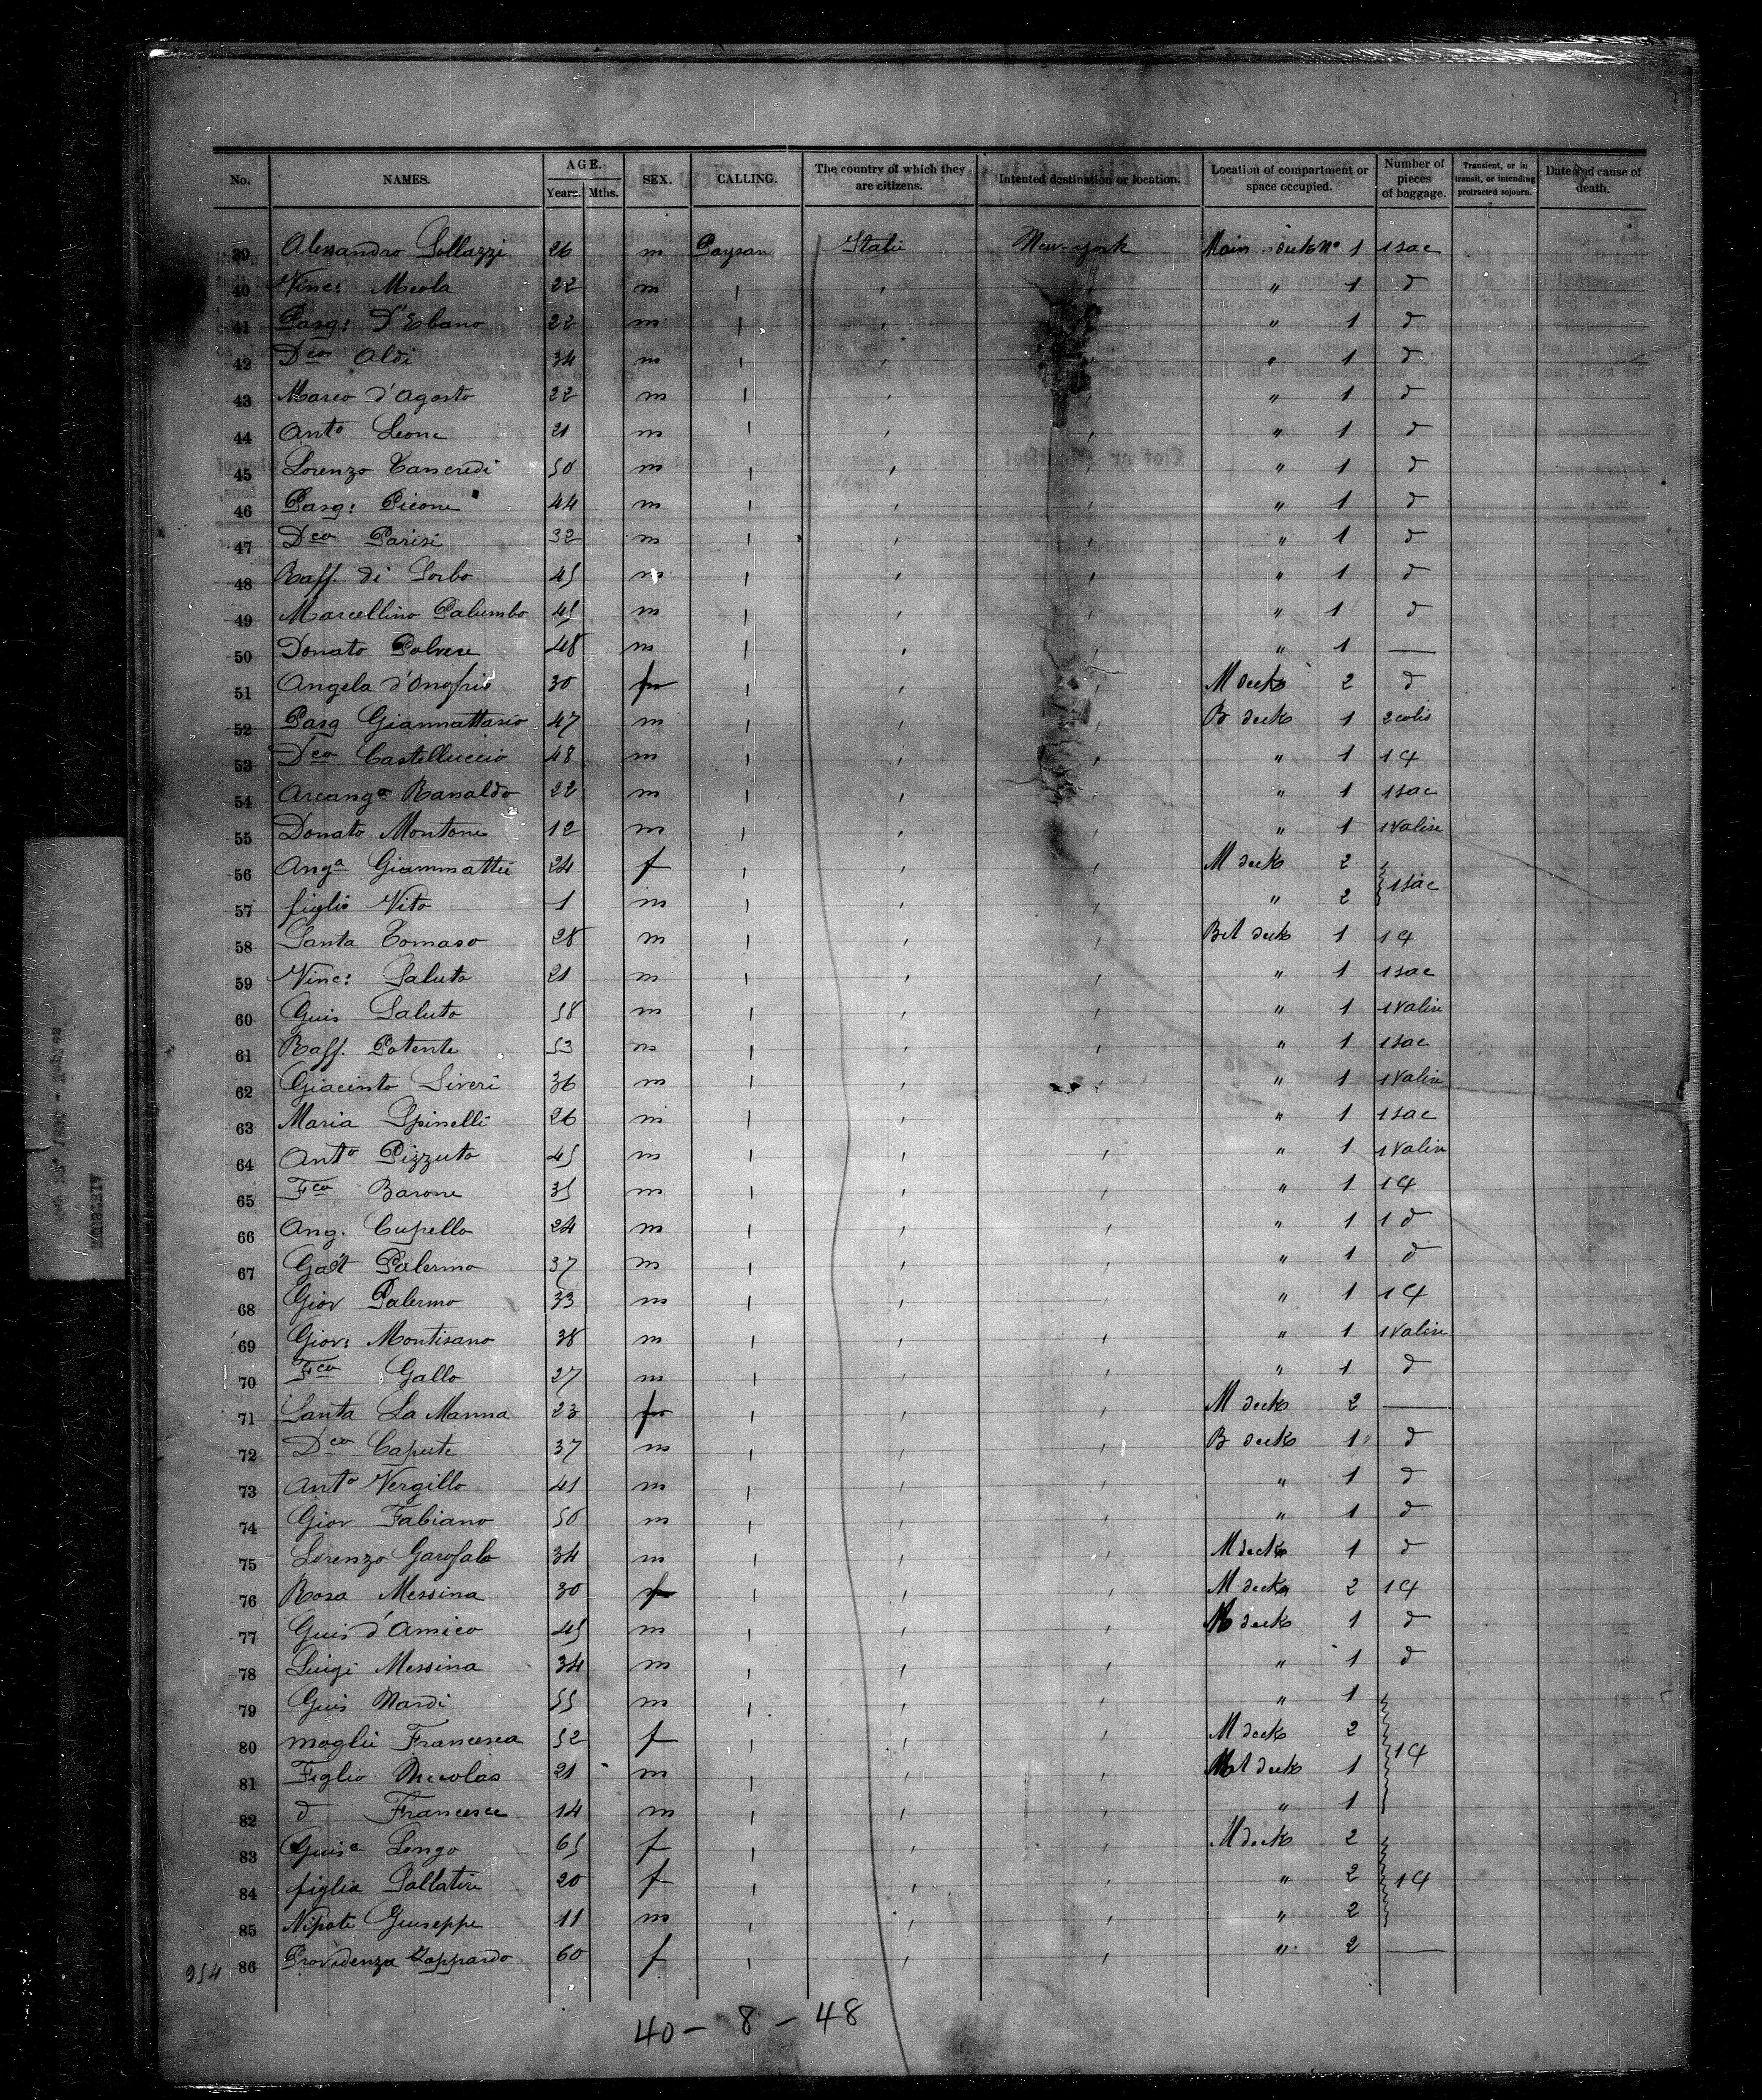 No. NAMES. AGE. Years. Mths. SEX. CALLING. The country of which they are citizens. Intented destination or location. Location of compartment or space occupied. Number of pieces of baggage. Transient, or in transit, or intending protracted sojourn. Date and cause of death.
39 Alessandro Sollazzi 26 m Paysan Italie New-york Main deck No 1 1 sac
40 Vinc: Meola 22 m " 1 d
41 Pasq: D'Ebano 22 m " 1 d
42 Dco Aldi 34 m " 1 d
43 Marco d'Agosto 22 m " 1 d
44 Anto Leone 21 m " 1 d
45 Lorenzo Tancredi 50 m " 1 d
46 Pasq: Picone 44 m " 1 d
47 Dco Parisi 32 m " 1 d
48 Raff. di Sorbo 45 m " 1 d
49 Marcellino Palumbo 45 m " 1 d
50 Donato Polvere 48 m " 1 —
51 Angela d'Onofrio 30 f M deck 2 d
52 Pasq Giannattasio 47 m B deck 1 2 colis
53 Dco Castelluccio 48 m " 1 1 4
54 Arcango Ranaldo 22 m " 1 1 sac
55 Donato Montone 12 m " 1 1 valise
56 Anga Giammattei 24 f M deck 2
57 figlio Vito 1 m " 2 1 sac
58 Santa Tomaso 28 m Bet deck 1 1 4
59 Vinc: Saluto 21 m " 1 1 sac
60 Guis Saluto 58 m " 1 1 valise
61 Raff. Potente 53 m " 1 1 sac
62 Giacinto Siveri 36 m " 1 1 valise
63 Maria Spinelli 26 m " 1 1 sac
64 Anto Pizzuto 45 m " 1 1 valise
65 Fco Barone 35 m " 1 1 4
66 Ang. Cupello 24 m " 1 1 d
67 Gaet Palermo 37 m " 1 d
68 Giov Palermo 33 m " 1 1 4
69 Giov: Montisano 38 m " 1 1 valise
70 Fco Gallo 27 m " 1 d
71 Santa La Manna 23 f M deck 2 —
72 Dco Capute 37 m B deck 1 d
73 Anto Vergillo 41 m " 1 d
74 Giov Fabiano 50 m " 1 d
75 Lorenzo Garofalo 34 m M deck 1 d
76 Rosa Messina 30 f M deck 2 1 4
77 Guis d'Amico 45 m deck 1 d
78 Luigi Messina 34 m " 1 d
79 Guis Nardi 55 m " 1
80 moglie Francesca 52 f M deck 2 1 4
81 Figlio Niccolas 21 m deck 1
82 d Francesco 14 m " 1
83 Guisa Longo 65 f M deck 2
84 figlia Sallatire 20 f " 2 1 4
85 Nipote Giuseppe 11 m " 2
954 86 Providenza Zappardo 60 f " 2 —
40 - 8 - 48